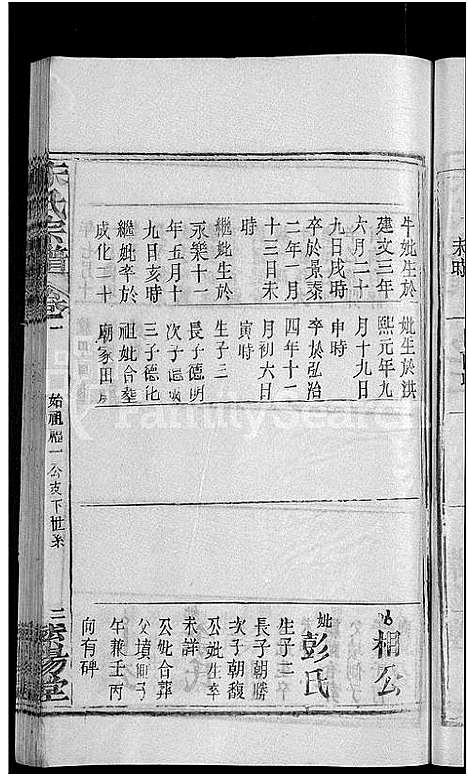 牛妣生於
建文三年
六月二十
九日戌時
卒於景泰
二年一月
十三日未
時
繼妣生於
永樂十一
年五月十
九日亥時
繼妣卒於
成化二十
妣生於洪
熙元年九
月十九日
申時
卒於弘治
四年十一
月初六日
寅時
生子三
長子德明
次子德
三子德化
祖妣合葬
廟家田
相公
妣彭氏
生子二
長子朝勝
次子朝馥
公妣生卒
未詳
公妣合葬
父墳
午兼壬丙
向有碑
氏宗譜
卷一
始祖福一公支下世系
三
堂
FamilySearch